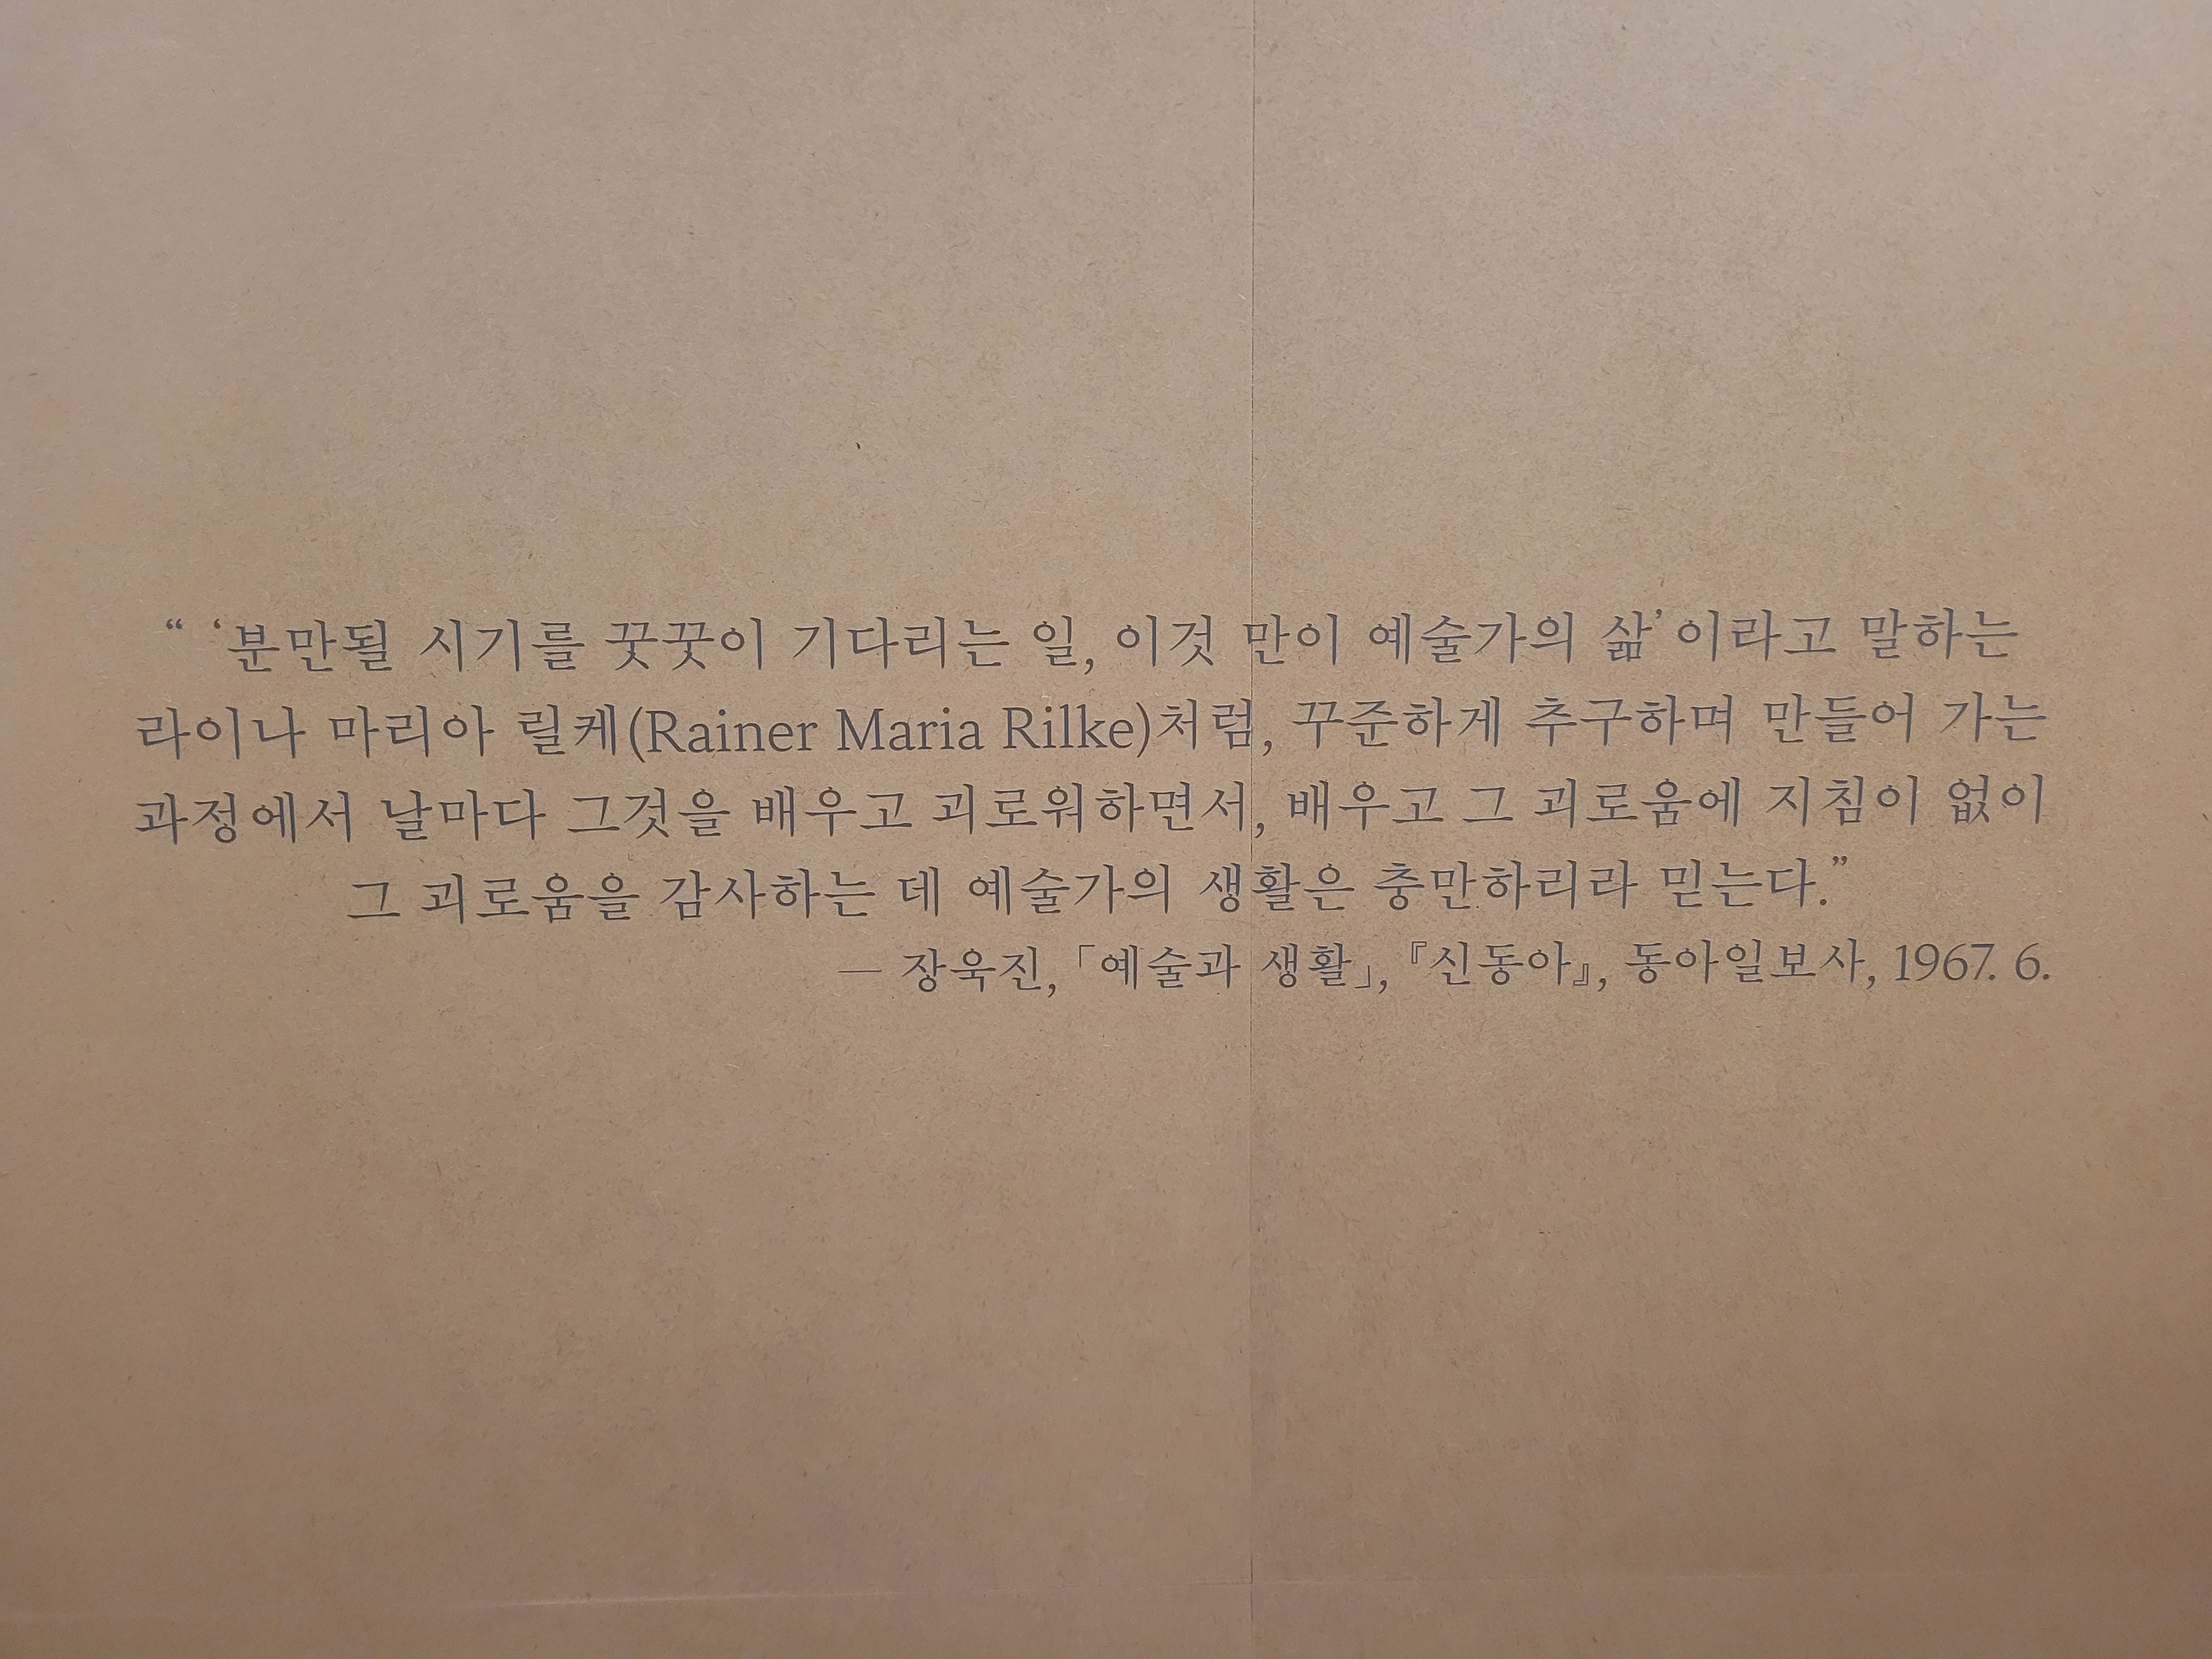 “ ‘분만될 시기를 꿋꿋이 기다리는 일, 이것 만이 예술가의 삶’이라고 말하는
라이나 마리아 릴케(Rainer Maria Rilke)처럼, 꾸준하게 추구하며 만들어 가는
과정에서 날마다 그것을 배우고 괴로워하면서, 배우고 그 괴로움에 지침이 없이
그 괴로움을 감사하는 데 예술가의 생활은 충만하리라 믿는다.”
— 장욱진, 「예술과 생활」, 『신동아』, 동아일보사, 1967. 6.